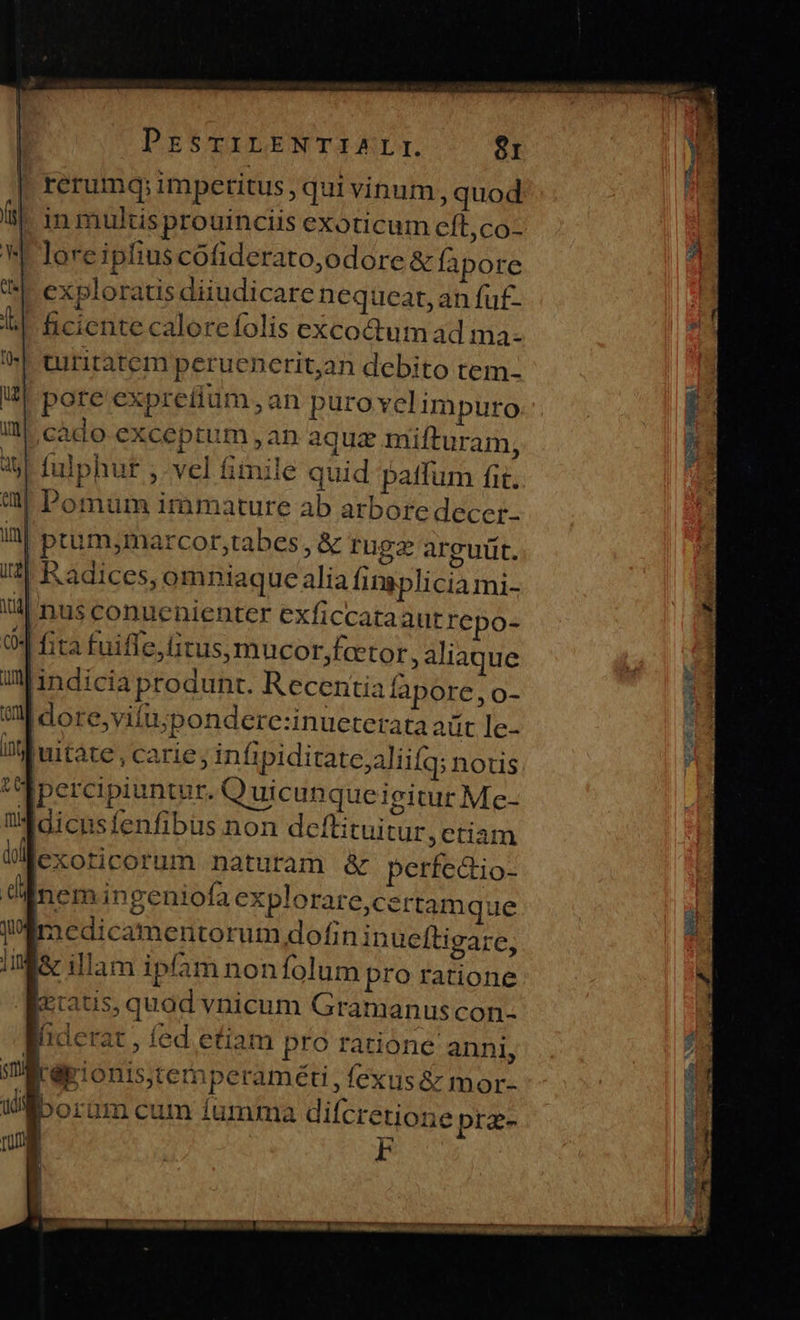 PESTILENTIALI. 81
rerumq; imperitus, qui vinum, quod
in multis prouinciis exoticum eſt, co-
lore ipſius cõſiderato, odore & ſapore
exploratis diiudicare nequeat, an ſuf-
ficiente calore ſolis excoctum ad ma-
turitatem peruenerit, an debito tem-
pore expreſſum, an puro vel impuro
cado exceptum, an aquæ miſturam,
ſulphur, vel ſimile quid paſſum ſit.
Pomum immature ab arbore decer-
ptum, marcor, tabes, & rugæ arguũt.
Radices, omniaque alia ſimplicia mi-
nus conuenienter exſiccata aut repo-
ſita fuiſſe, ſitus, mucor, fœtor, aliaque
indicia produnt. Recentia ſapore, o-
dore, viſu, pondere: inueterata aũt le-
uitate, carie, inſipiditate, aliiſq; notis
percipiuntur. Quicunque igitur Me-
dicus ſenſibus non deſtituitur, etiam
exoticorum naturam & perfectio-
nem ingenioſa explorare, certamque
medicamentorum doſin inueſtigare,
& illam ipſam non ſolum pro ratione
ætatis, quod vnicum Gramanus con-
ſiderat, ſed etiam pro ratione anni,
regionis, temperamẽti, ſexus & mor-
borum cum ſumma diſcretione præ-
F